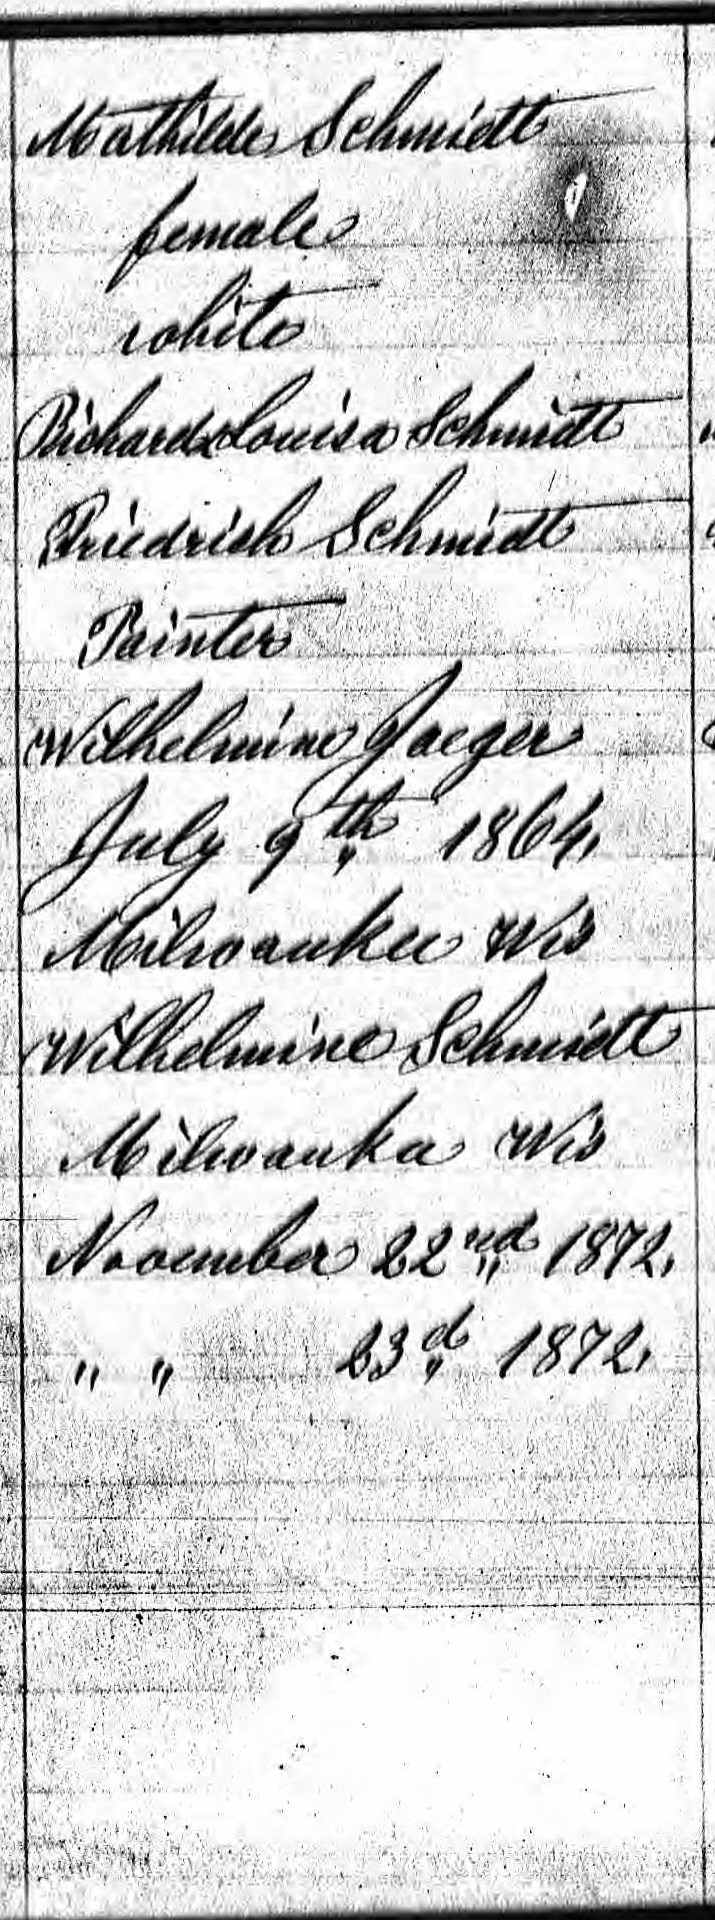 Mathilde Schmidt
female
white
Richard & Louisa Schmidt
Friedrich Schmidt
Painter
Wilhelmine Jaeger
July 9th 1864,
Milwaukee Wis
Wilhelmine Schmidt
Milwaukee Wis
November 22nd 1872,
" " 23d 1872,